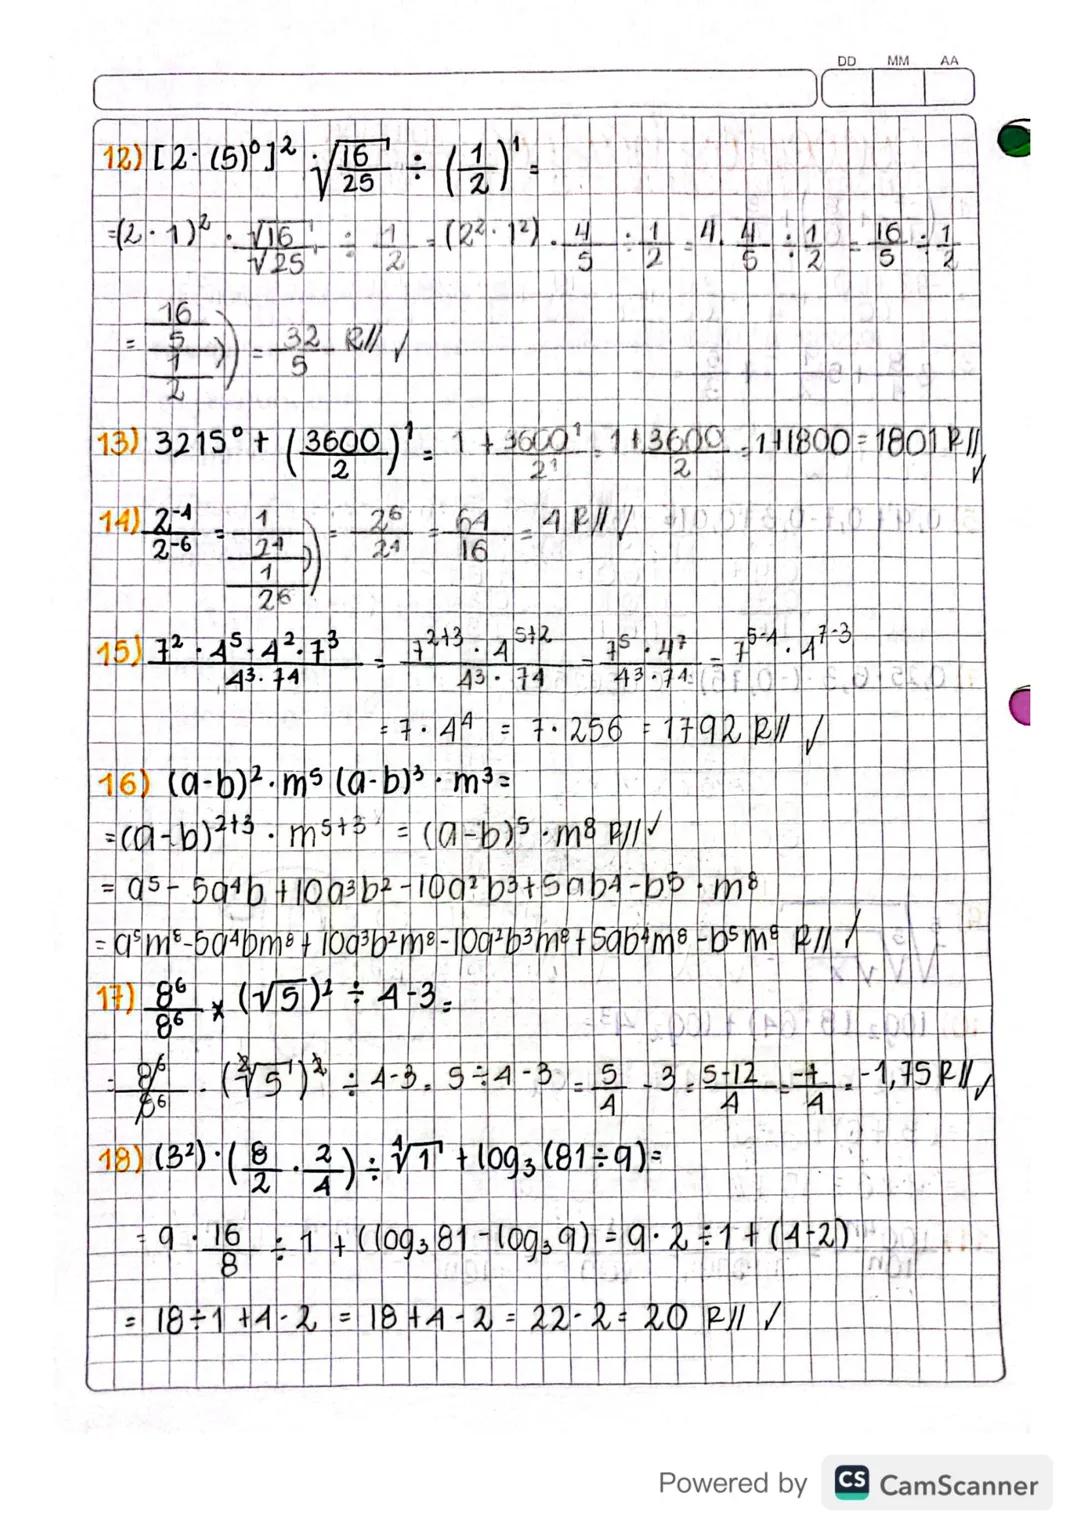 DD MM AA
12) [2 · (5)⁰]² · √(16/25) ÷ (1/2)¹ =
=(2 · 1)² · √16/√25 ÷ 1/2 = (2² · 1²) · 4/5 ÷ 1/2 = 4 · 4/5 ÷ 1/2 = 16/5 ÷ 1/2
= (16/5)/(1/2) = 32/5 R// ✓
13) 3215⁰ + (3600/2)¹ = 1 + 3600¹/2¹ = 1+3600/2 = 1+1800 = 1801 R// ✓
14) 2⁻⁴/2⁻⁶ = (1/2⁴)/(1/2⁶) = 2⁶/2⁴ = 64/16 = 4 R// ✓
15) 7² · 4⁵ · 4² · 7³/4³ · 7⁴ = 7²⁺³ · 4⁵⁺²/4³ · 7⁴ = 7⁵ · 4⁷/4³ · 7⁴ = 7⁵⁻⁴ · 4⁷⁻³
= 7 · 4⁴ = 7 · 256 = 1792 R// ✓
16) (a-b)² · m⁵ (a-b)³ · m³ =
=(a-b)²⁺³ · m⁵⁺³ = (a-b)⁵ · m⁸ R// ✓
= a⁵ - 5a⁴b + 10a³b² - 10a²b³ + 5ab⁴ - b⁵ · m⁸
= a⁵m⁸ - 5a⁴bm⁸ + 10a³b²m⁸ - 10a²b³m⁸ + 5ab⁴m⁸ - b⁵m⁸ R// ✓
17) 8⁶/8⁶ × (√5)² ÷ 4 - 3 =
= 8⁶/8⁶ · (²√5)² ÷ 4 - 3 = 5 ÷ 4 - 3 = 5/4 - 3 = 5-12/4 = -7/4 = -1,75 R// ✓
18) (3²) · (8/2 · 2/4) ÷ ⁴√1 + log₃ (81÷9) =
= 9 · 16/8 ÷ 1 + (log₃81 - log₃9) = 9 · 2 ÷ 1 + (4-2)
= 18÷1 + 4 - 2 = 18 + 4 - 2 = 22 - 2 = 20 R// ✓
Powered by CS CamScanner